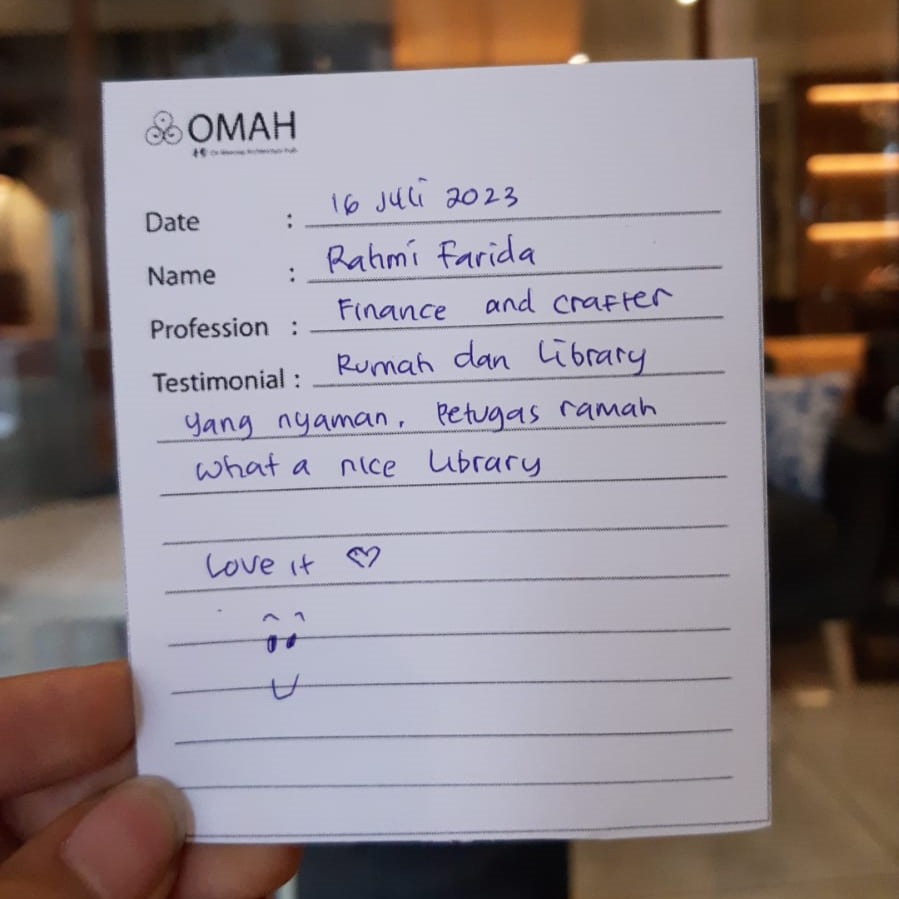 OMAH
Date : 16 Juli 2023
Name : Rahmi Farida
Profession : Finance and crafter
Testimonial : Rumah dan Library
yang nyaman, Petugas ramah
what a nice Library
Love it ♡